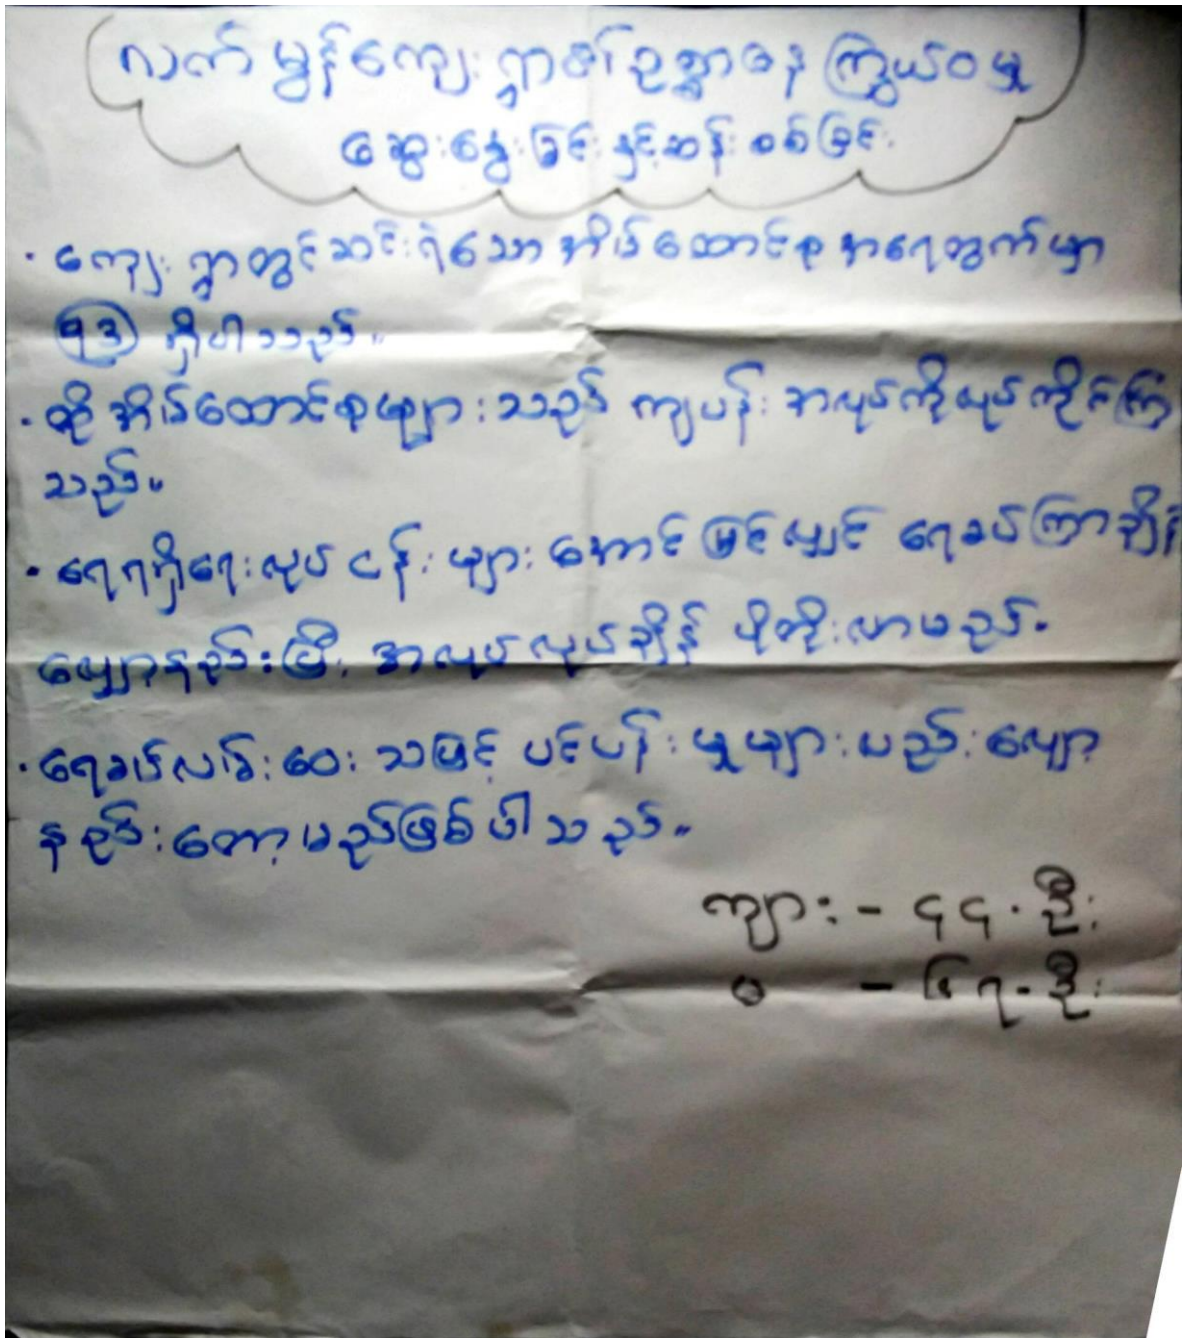 လက်မွန်ကျေးရွာ၏ဥစ္စာဓနကြွယ်ဝမှု
ဆွေးနွေးခြင်းနှင့်ဆန်းစစ်ခြင်း
· ကျေးရွာတွင်ဆင်းရဲသောအိမ်ထောင်စုအရေတွက်မှာ
၅၃ ရှိပါသည်။
· ထိုအိမ်ထောင်စုများသည် ကျပန်းအလုပ်ကိုလုပ်ကိုင်ကြ
သည်။
· ရေရရှိရေးလုပ်ငန်းများအောင်မြင်လျှင် ရေခပ်ကြာချိန်
လျော့နည်းပြီး အလုပ်လုပ်ချိန် ပိုတိုးလာမည်။
· ရေခပ်လမ်းဝေးသဖြင့် ပင်ပန်းမှုများလည်းလျော့
နည်းတော့မည်ဖြစ်ပါသည်။
ကျား - ၄၄ · ဦး
မ - ၆၇ - ဦး